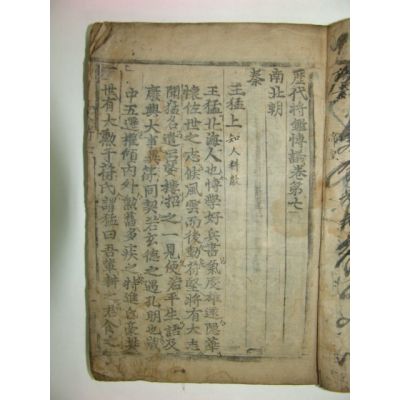 歷代將鑑博議卷第七
南北朝
秦
王猛上 知人料敵
王猛北海人也博學好兵書氣度雄遠隱華
懷佐世之志候風雲而後動苻堅將有大志
聞猛名遣呂婆樓招之一見便若平生語及
廢興大事異符同契若玄德之遇孔明也歲
中五遷權傾內外勲舊多疾之特進
世有大勲于苻氏謂猛曰吾輩耕之君食之